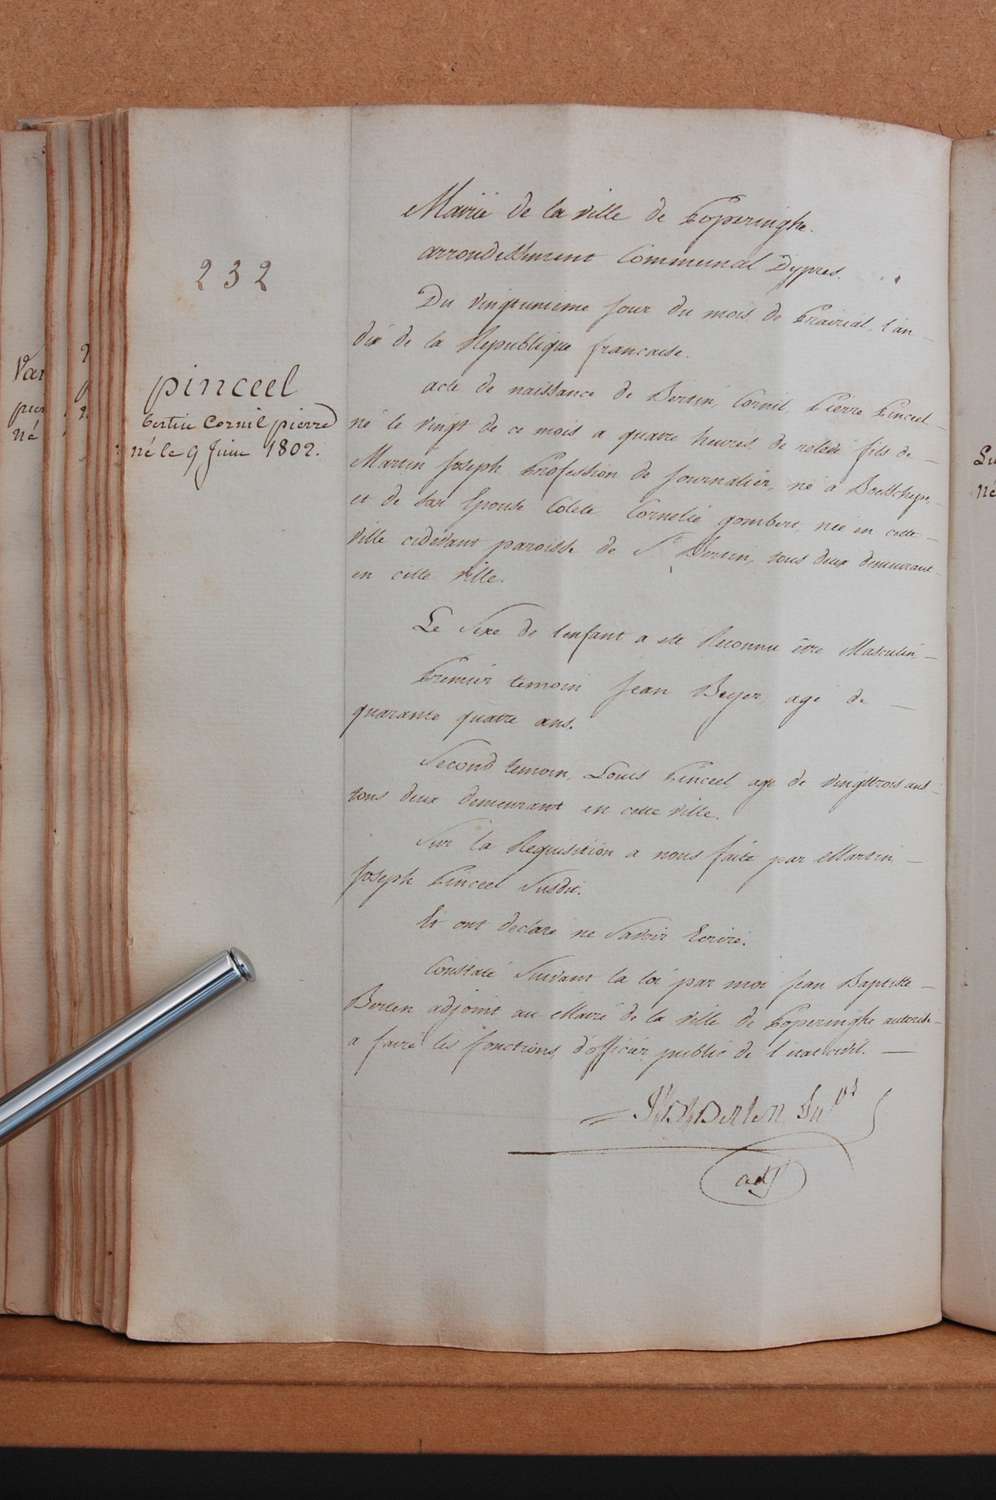 232
pinceel
bertin Cornil pierre
né le 9 Juin 1802.
Mairie de la ville de Poperinghe.
arrondissement Communal Dypres.
Du vingtunieme jour du mois de Prairial, l'an
dix de la Republique francaise.
acte de naissance de Bertin Cornil Pierre Pinceel
né le vingt de ce mois a quatre heures de relevée fils de
Martin Joseph Profession de Journalier, né a
et de sax Epouse Colete Cornelie gombert née en cette
ville cidevant paroisse de St Bertin, tous deux demeurant
en cette ville.
Le Sexe de l'enfant a été Reconnu être Masculin
Premier temoin Jean Beyer, agé de
quarante quatre ans.
Second temoin, Louis Pinceel agé de vingttrois ans
tous deux demeurant en cette ville.
Sur la Requisition a nous faite par Martin
Joseph Pinceel Susdit.
Et ont declaré ne Savoir Ecrire.
Constaté Suivant la loi par moi Jean Baptiste
Bertin adjoint au Maire de la ville de Poperinghe autorisé
a faire les fonctions d'officier public de l'etat civil.
JB Bertin
adj
Va
pier
né
né